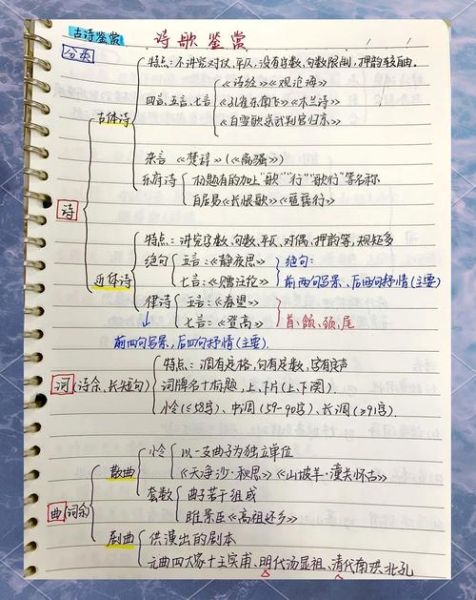 古诗鉴赏
诗歌鉴赏
分类
特点：不讲究对仗，平仄，没有字数，句数限制，押韵较自由．
《诗经》《观沧海》
四言、五言、七言 《孔雀东南飞》《木兰诗》
《白雪歌送武判官归京》
古体诗
杂言 《楚辞》（《离骚》）
乐府诗 标题有的加上"歌""行""歌行"等名称
白居易《长恨歌》《琵琶行》
诗
特点：讲究字数，句数，平仄，对偶，押韵等，规矩多
绝句 五言：《静夜思》 绝句：
七言：《赠汪伦》 前两句写景、后两句抒情（主要）
近体诗
律诗 五言：《春望》
七言：《登高》 首、颔、颈、尾
前四句写景，后四句抒情（主要）
特点：调有定格，句有定数，字有定声
词（诗余、长短句） 词牌名十标题，上、下片（上、下阕）
小令（≤58字）、中调（59-90字）、长调（≥91字）
小令 以一支曲子为独立单位
散曲 《天净沙·秋思》《山坡羊·潼关怀古》
套数 曲子若干组成
曲（词余） 睢景臣《高祖还乡》
剧曲 供演出的剧本
元曲四大家十王实甫、明代汤显祖、清代南洪北孔